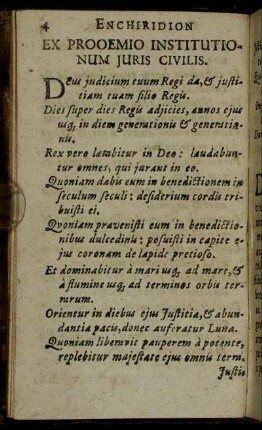 4 ENCHIRIDION
EX PROOEMIO INSTITUTIO-
NUM JURIS CIVILIS.
Deus judicium tuum Regi da, & justi-
tiam tuam filio Regis.
Dies super dies Regis adjicies, annos ejus
usq, in diem generationis & generatio-
nis.
Rex vero lætabitur in Deo: laudabun-
tur omnes, qui jurant in eo.
Quoniam dabis eum in benedictionem in
seculum seculi: desiderium cordis tri-
buisti ei.
Quoniam prævenisti eum in benedictio-
nibus dulcedinis: posuisti in capite e-
jus coronam de lapide pretioso.
Et dominabitur à mari usq, ad mare, &
à flumine usq, ad terminos orbis ter-
rarum.
Orientur in diebus ejus Justitia, & abun-
dantia pacis, donec auferatur Luna.
Quoniam liberavit pauperem à potente,
replebitur majestate ejus omnis terra.
Justi-